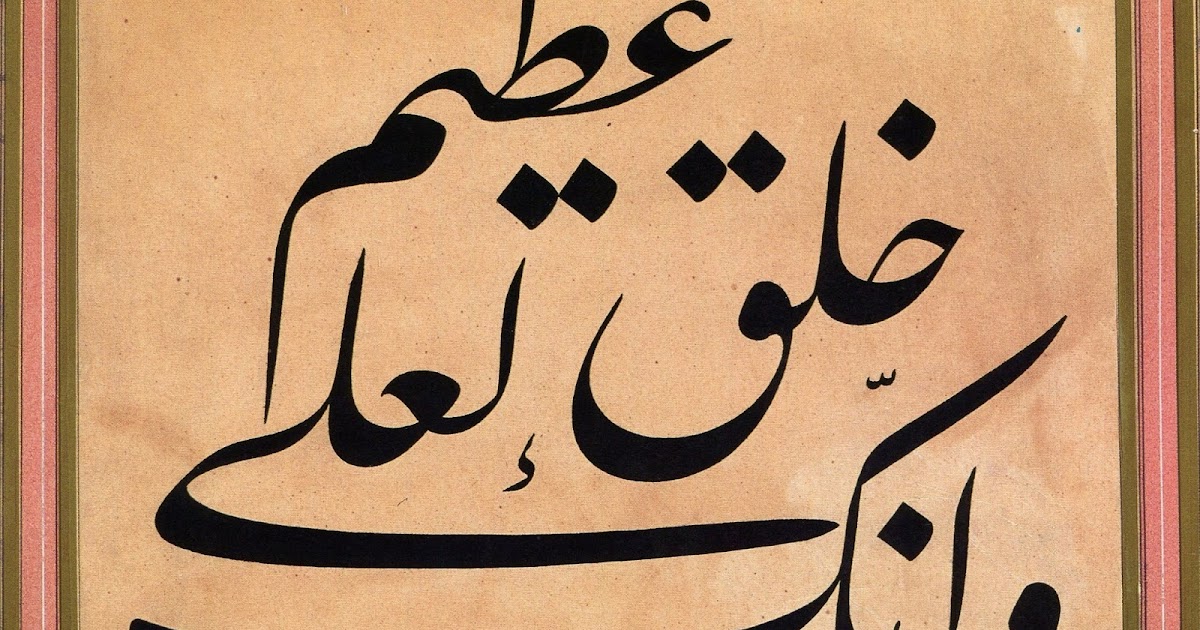 وإنّك
لعلى خلق
عظيم